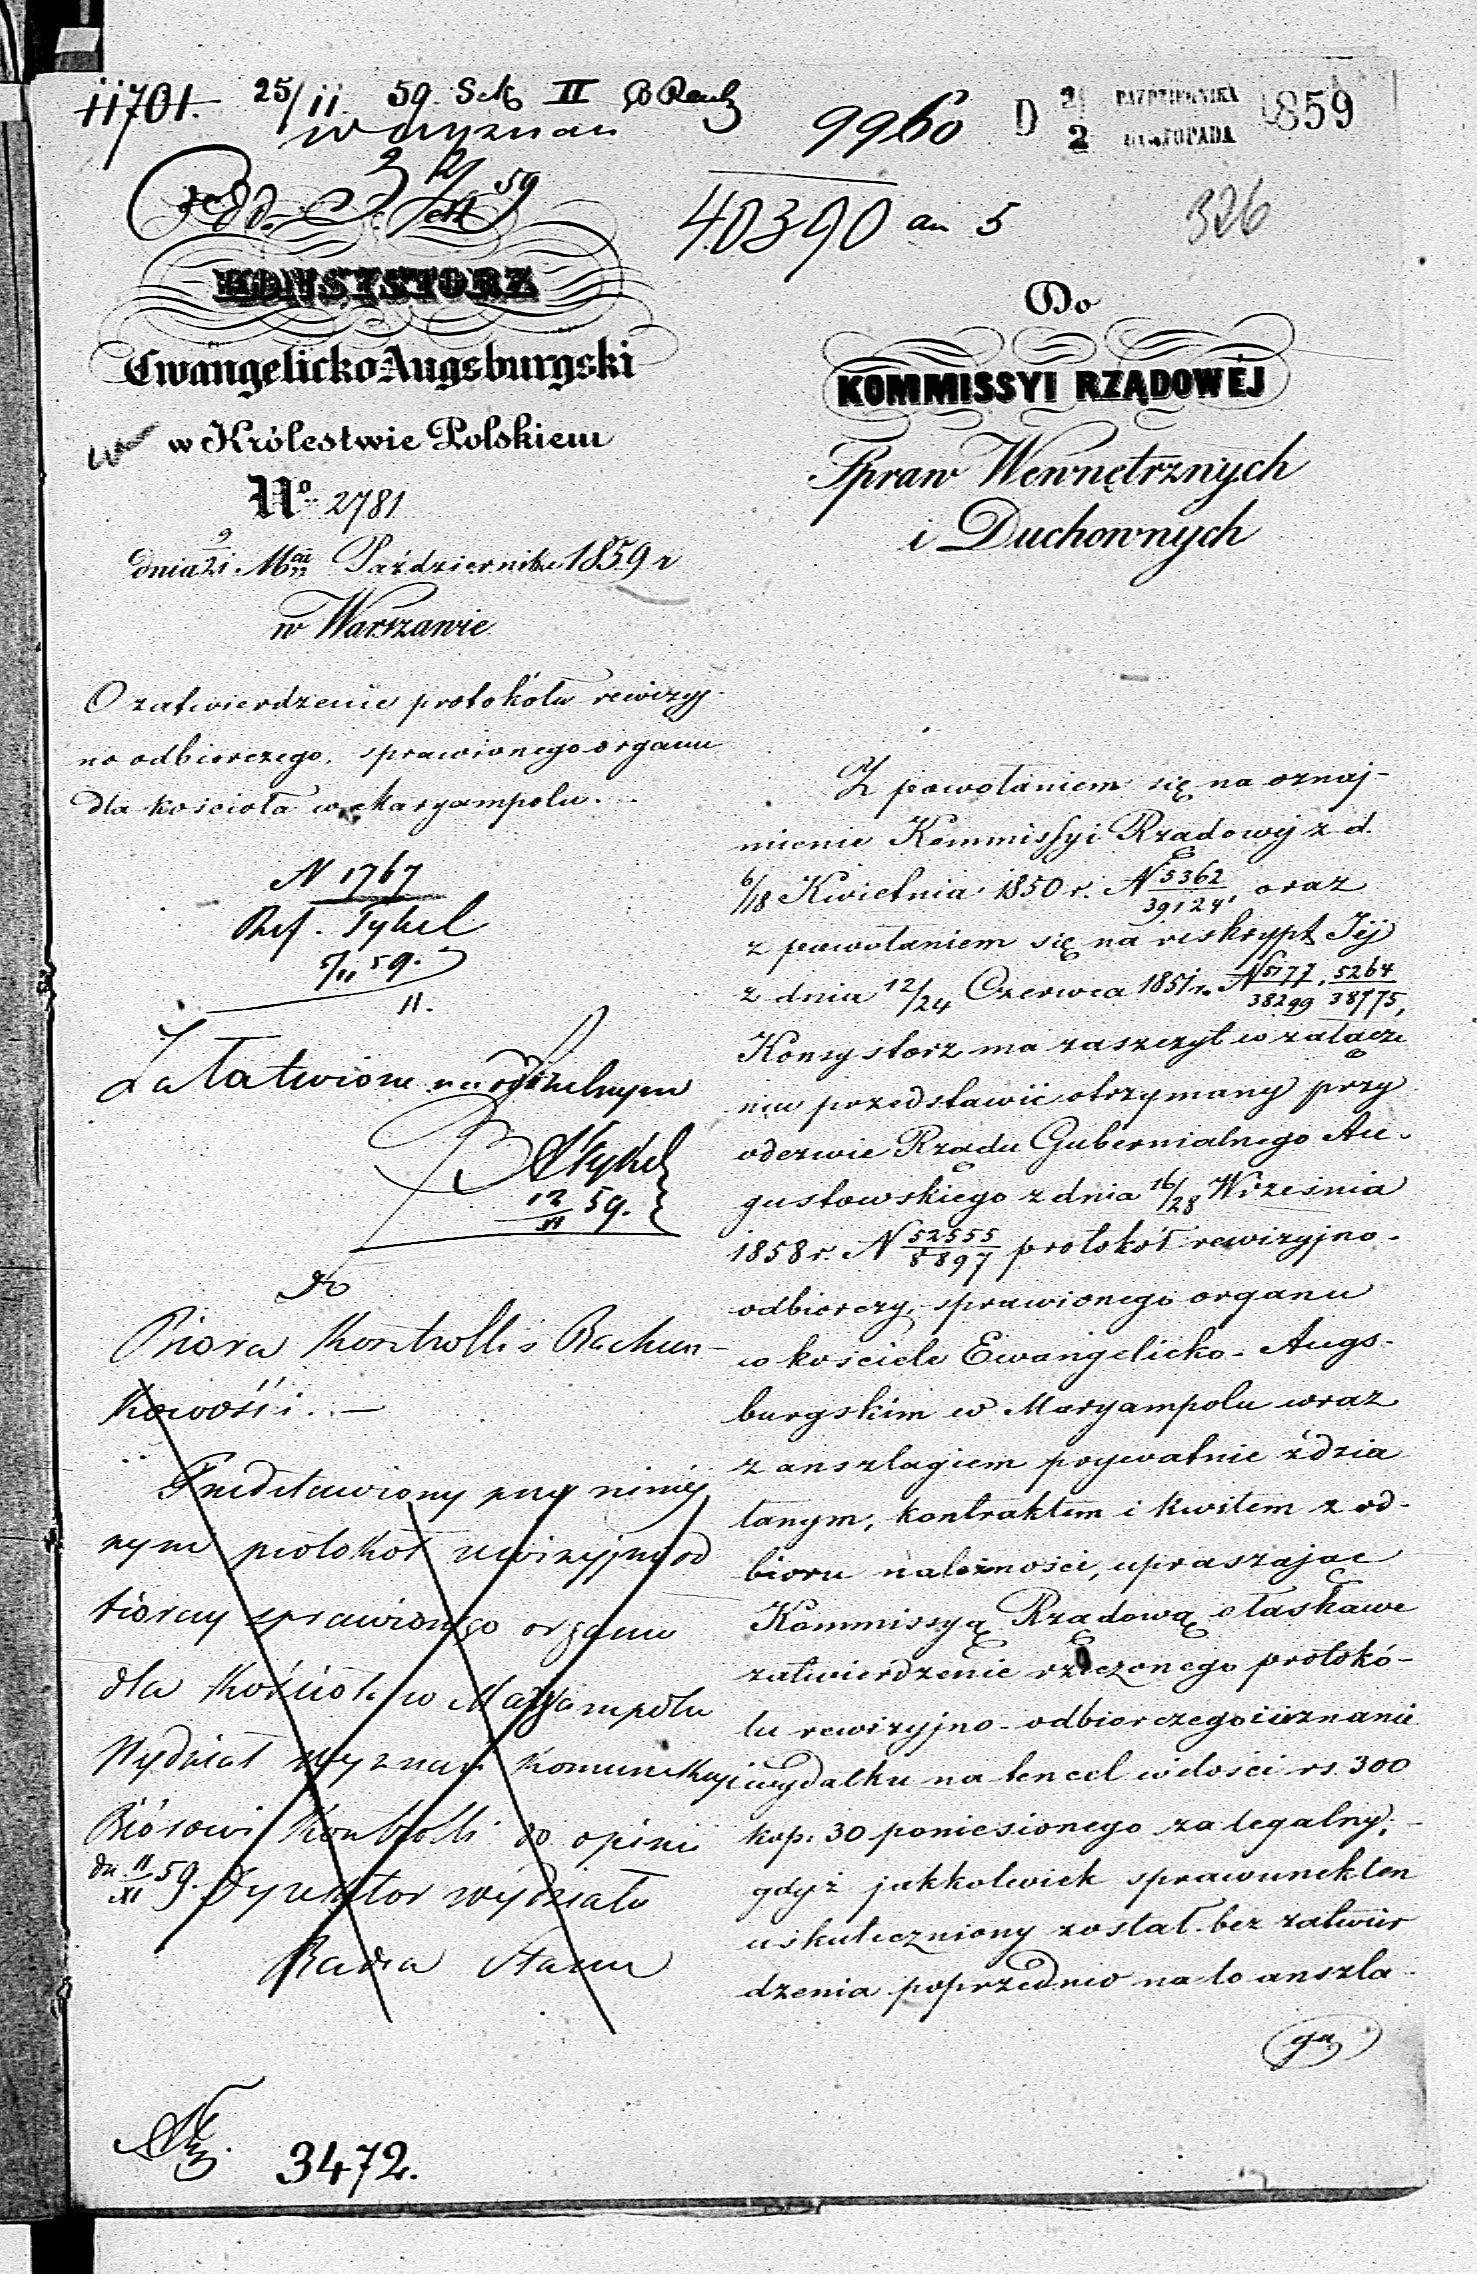 11701. 25/11. 59. Sek II
9960
D 21/2 PAZDZIERNIKA LISTOPADA 1859
40390 an 5
326
KONSYSTORZ
Ewangelicko Augsburgski
w Królestwie Polskiem
No 2781
dnia 9/21 Mca Października 1859 r
w Warszawie
O zatwierdzenie protokółu rewizyj-
no odbiorczego, sprawionego organu
dla kościoła w Maryampolu.
N 1767
Ref. Tykel
5/11 59.
11.
Załatwiono na oddzielnym
12/XI 59.
Do
Biora Kontrolli i Rachun-
kowości. —
Przedstawiony przy niniej
szym protokół rewizyjno od
biorczy sprawionego organu
dla Kościoła w Maryampolu
Wydział Wyznań komunikuje
Biórowi Kontrolli do opinii
dn 11/XI 59. Dyrektor Wydziału
Radca Stanu
3472.
Do
KOMMISSYI RZĄDOWÉJ
Spraw Wewnętrznych
i Duchownych
Z powołaniem się na oznaj-
mienie Kommissyi Rządowéj z d.
6/18 Kwietnia 1850 r. N 5362/39124, oraz
z powołaniem się na reskrypt Jéj
z dnia 12/24 Czerwca 1851 r. N 5177/38299, 5264/38775,
Konsystorz ma zaszczyt w załącze
niu przedstawić otrzymany przy
odezwie Rządu Gubernialnego Au-
gustowskiego z dnia 16/28 Września
1858 r. N 52555/8897 protokół rewizyjno-
odbiorczy, sprawionego organu
w kościele Ewangelicko-Augs-
burgskim w Maryampolu wraz
z anszlagiem prywatnie zdzia
łanym, kontraktem i kwitem z od-
bioru należności, upraszając
Kommissyą Rządową o łaskawe
zatwierdzenie rzeczonego protokó-
łu rewizyjno-odbiorczego i uznanie
wydatku na ten cel w ilości rs. 300
kop: 30 poniesionego za legalny;
gdyż jakkolwiek sprawunek ten
uskuteczniony został bez zatwier
dzenia poprzednio na to anszla-
gu